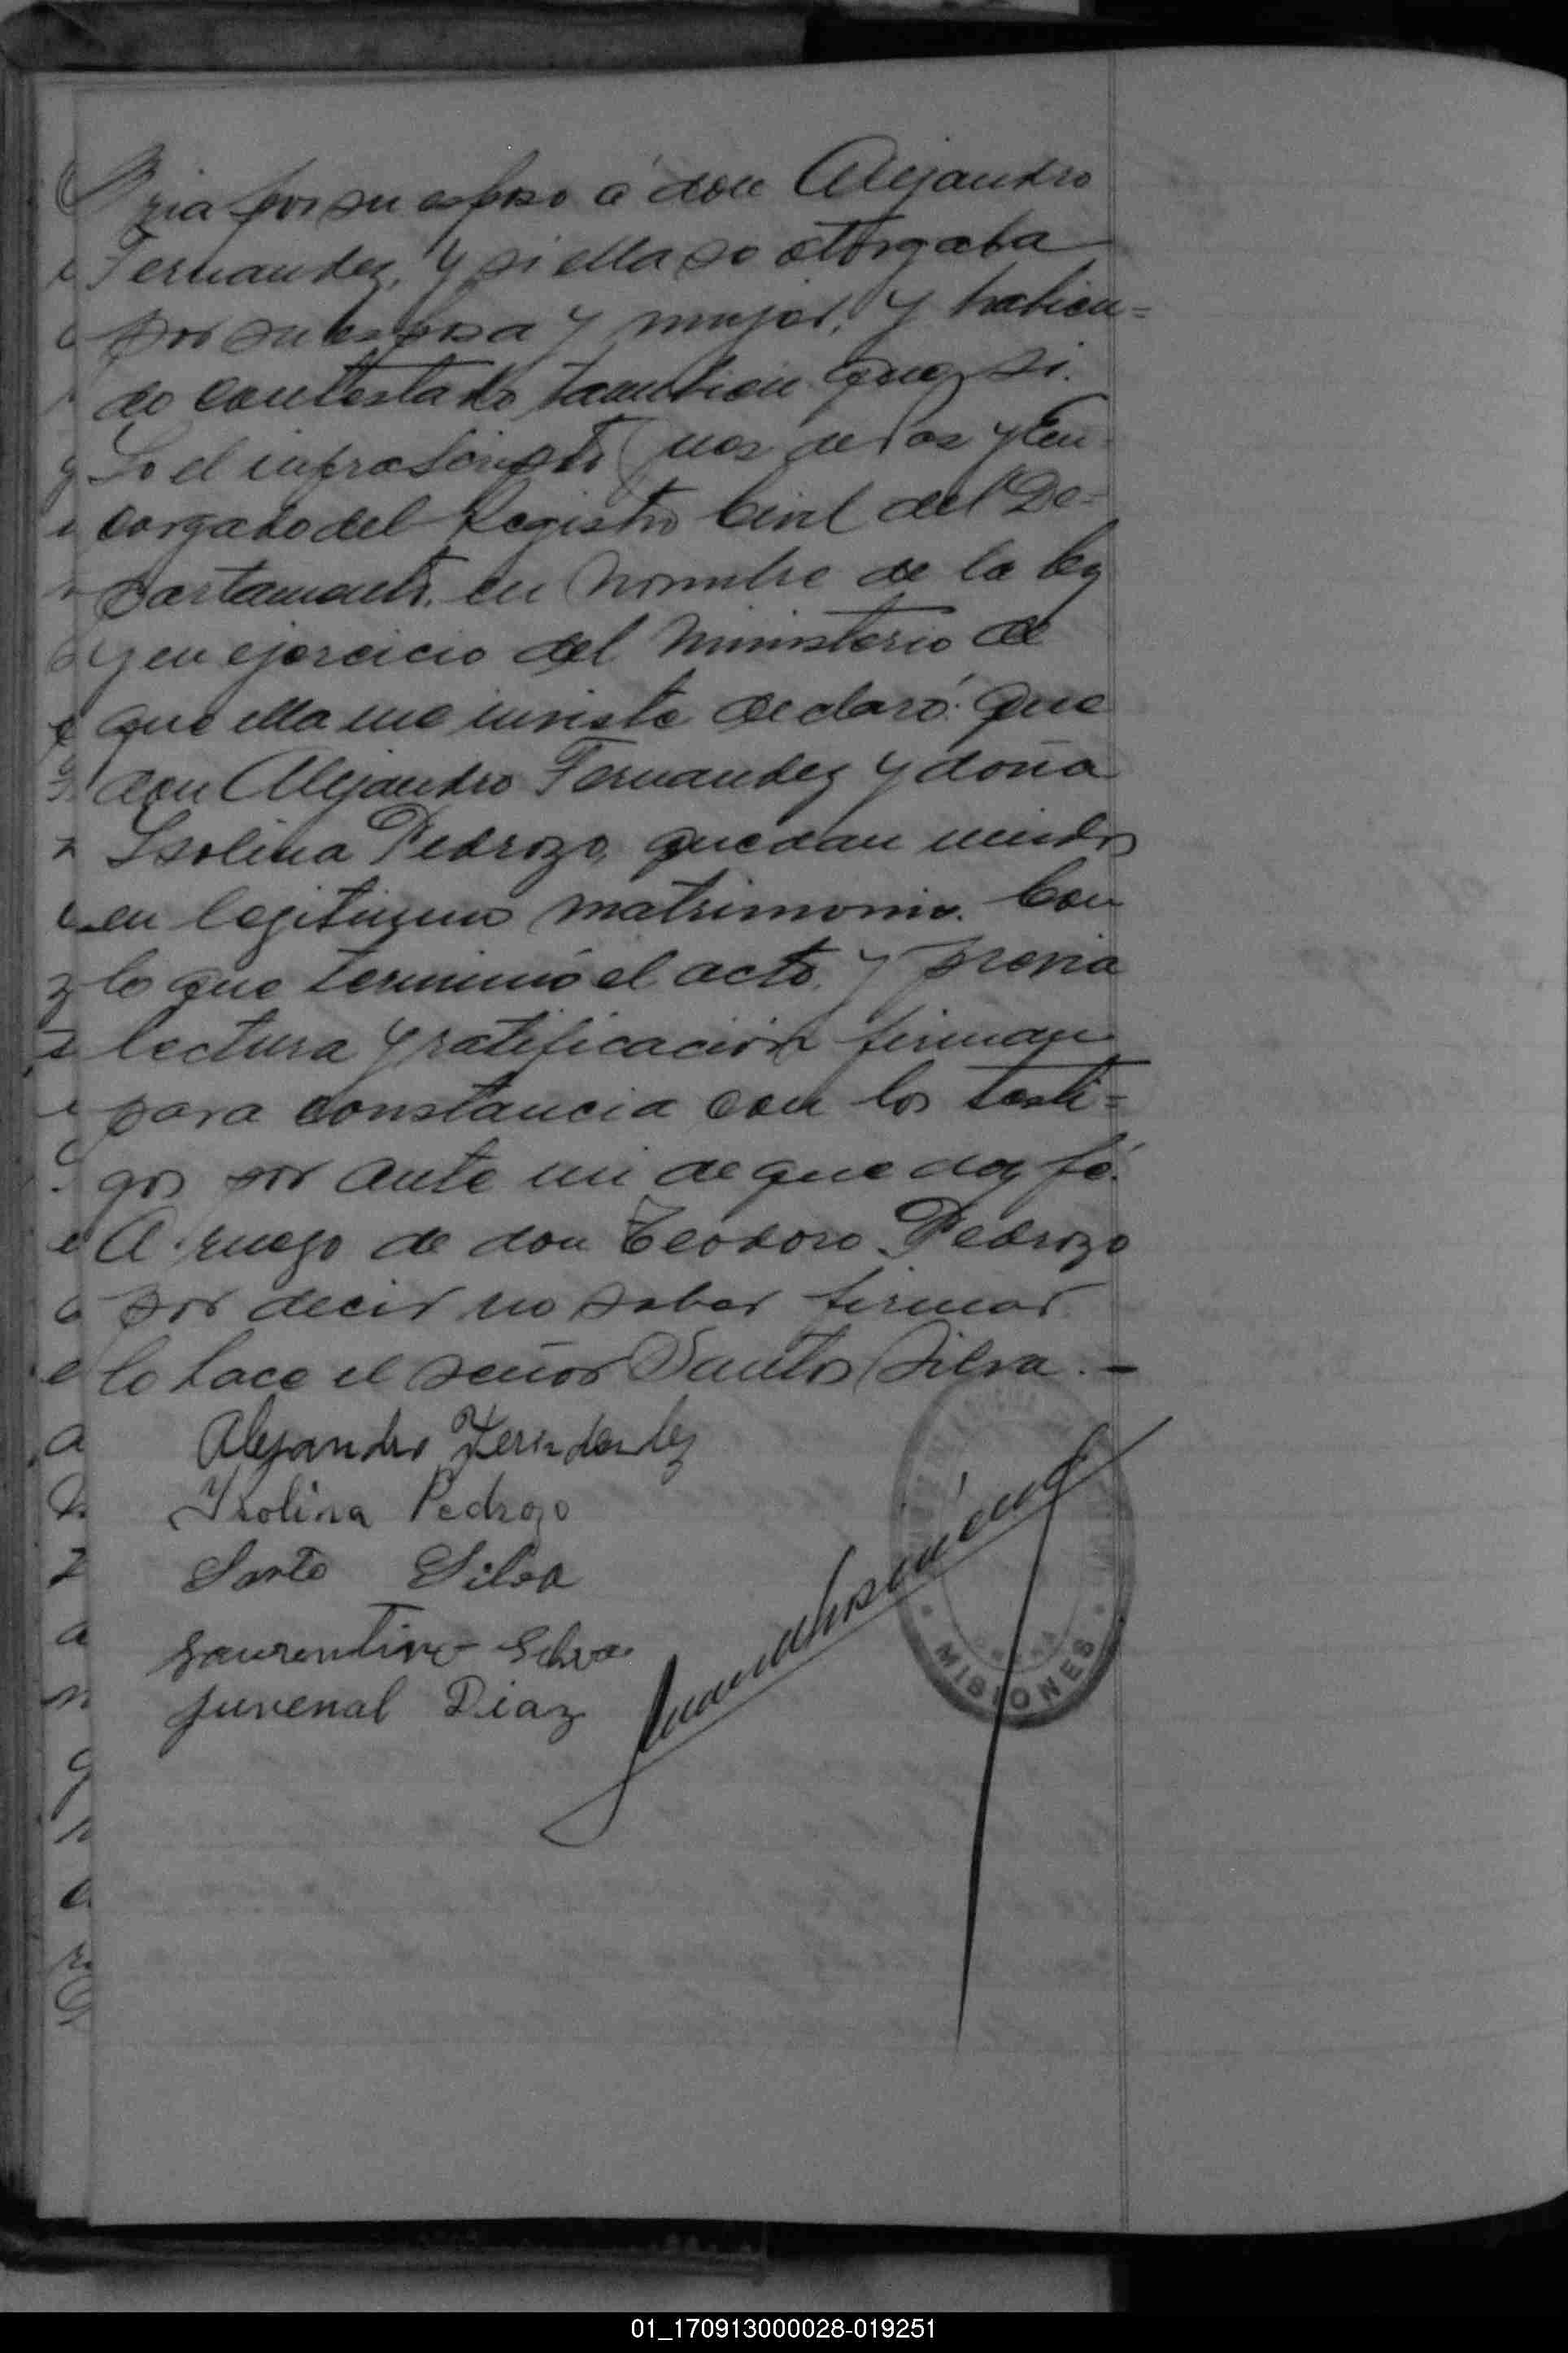 ria por su esposo á don Alejandro
Fernandez, y si ella se otorgaba
por su esposa y mujer, y habien=
do contestado tambien que si.
Yo el infrascripto Juez de Paz y En-
cargado del Registro Civil del De=
partamento, en nombre de la ley
y en ejercicio del Ministerio de
que ella me inviste declaró: que
don Alejandro Fernandez y doña
Isolina Pedrozo, quedan unidos
en legitimo matrimonio. Con
lo que terminó el acto, y previa
lectura y ratificación firman
para constancia con los testi=
gos por ante mi de que doy fé.
A ruego de don Teodoro Pedrozo
por decir no saber firmar
lo hace el señor Santos Silva. —
Alejandro Fernandez
Isolina Pedrozo
Santo Silva
Laurentino Silva
Juvenal Diaz
MISIONES
01_170913000028-019251